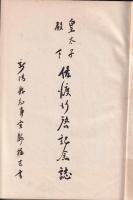 皇太子
殿下
佐渡行啓記念誌
新潟県知事